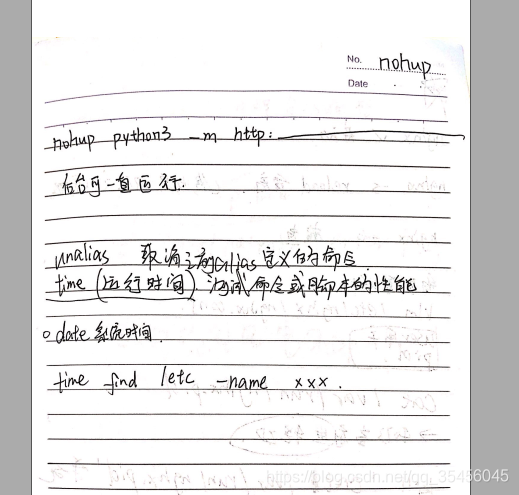 No. nohup
Date
nohup python3 -m http:
后台可一直运行.
unalias 取消之前alias定义的命令
time (运行时间). 测试命令或脚本的性能
date 系统时间.
time find /etc -name xxx.
https://blog.csdn.net/qq_35456045